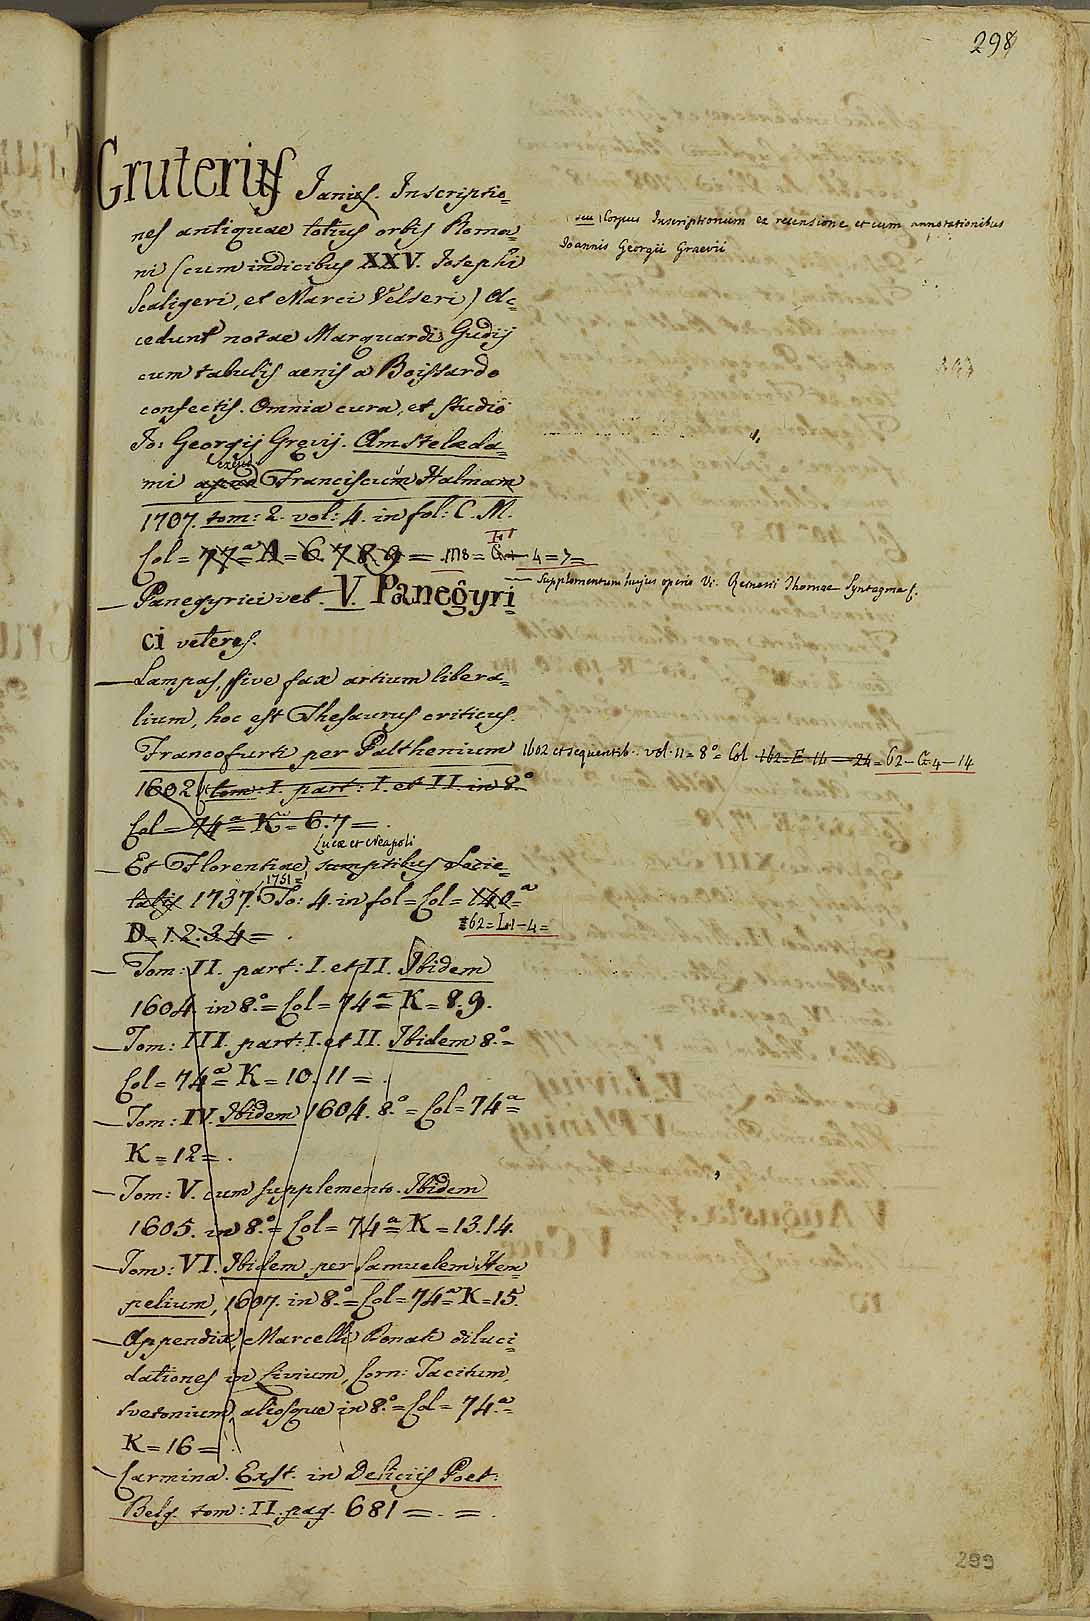 298
Gruterius Janus. Inscriptio=
nes antiquae totius orbis Roma=
ni (cum indicibus XXV. Josephi
Scaligeri, et Marci Velseri) Ac=
cedunt notae Marquardi Gudij
cum tabulis aenis a Boissardo
confectis. Omnia cura, et studio
Jo: Georgij Grevij. Amstelæda=
mi apud Franciscum Halmam
1707. tom: 2. vol: 4. in fol: C. M.
Col = 77ª = A = 6. 7. 8. 9 = 118 = G 4 = 7 =
(seu) Corpus Inscriptionum ex recensione, et cum annotationibus
Joannis Georgii Graevii
— Panegyrici vet. V. Panegyri=
ci veteres.
Supplementum hujus operis Vi. Reinesii Thomae Syntagma
— Lampas, sive fax artium libera=
lium, hoc est Thesaurus criticus.
Francofurti per Palthenium 1602 et sequentib. vol. 11 = 8º = Col 162 = E 14 — 24 = 62 — G. 4 — 14
1602. tom: I. part: I. et II. in 8.º
Col = 74ª = K = 6. 7 =.
Lucæ et Neapoli
— Et Florentiae sumptibus Socie=
tatis 1737. 1751 = To: 4. in fol = Col = 140ª
D = 1. 2. 3. 4 = . 62 = L. 1 — 4 =
— Tom: II. part: I. et II. Ibidem
1604. in 8.º = Col = 74ª = K = 8. 9.
— Tom: III. part: I. et II. Ibidem 8.º =
Col = 74ª = K = 10. 11 = .
— Tom: IV. Ibidem 1604. 8.º = Col = 74ª =
K = 12 = .
— Tom: V. cum supplemento. Ibidem
1605. in 8.º = Col = 74ª = K = 13. 14.
— Tom: VI. Ibidem per Samuelem Hem
pelium, 1607. in 8.º = Col = 74ª = K = 15.
— Appendix, Marcelli Donati diluci=
dationes in Livium, Corn: Tacitum,
Svetonium, aliosque in 8.º = Col = 74.ª =
K = 16 = .
— Carmina. Exst. in Deliciis Poet:
Belg. tom: II. pag. 681 = . = .
299